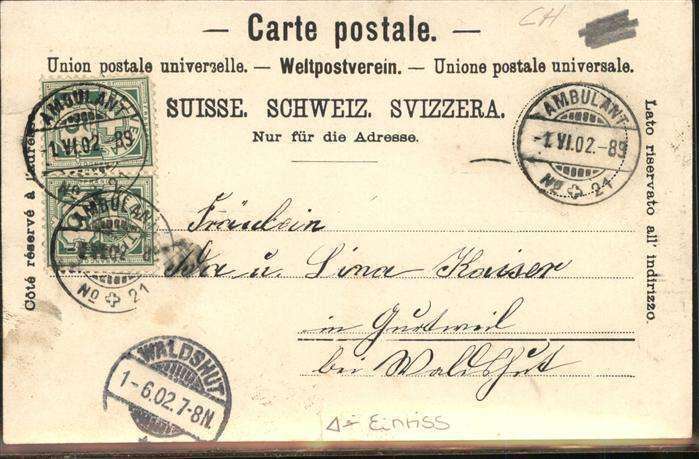 CH
— Carte postale. —
Union postale universelle. — Weltpostverein. — Unione postale universale.
SUISSE. SCHWEIZ. SVIZZERA.
Nur für die Adresse.
Côté réservé à l'adresse.
Lato riservato all' indirizzo.
AMBULANT
1.VI.02.-89
No 21
AMBULANT
-1.VI.02.-89
No 21
AMBULANT
VI.02
No 21
Fräulein
Ida u. Lina Kaiser
in Gurtweil
bei Waldshut
WALDSHUT
1-6.02.7-8N.
Einriss